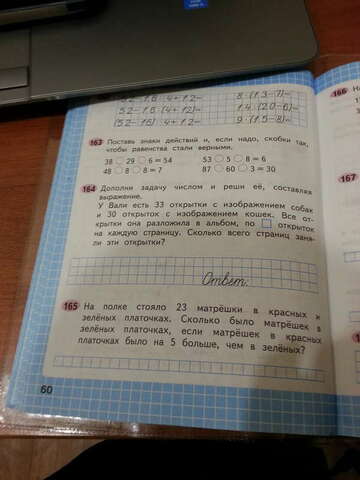 52-16:4+12=
8·(13-7)=
52-16:(4+12)=
14·(20-6)=
(52-16):4+12=
9·(15-8)=
163 Поставь знаки действий и, если надо, скобки так,
чтобы равенства стали верными.
38 29 6=54
53 5 8=6
48 8 8=7
87 60 3=30
164 Дополни задачу числом и реши её, составляя
выражение.
У Вали есть 33 открытки с изображением собак
и 30 открыток с изображением кошек. Все от-
крытки она разложила в альбом, по открыток
на каждую страницу. Сколько всего страниц заня-
ли эти открытки?
Ответ:
165 На полке стояло 23 матрёшки в красных и
зелёных платочках. Сколько было матрёшек в
зелёных платочках, если матрёшек в красных
платочках было на 5 больше, чем в зелёных?
60
166 На
167